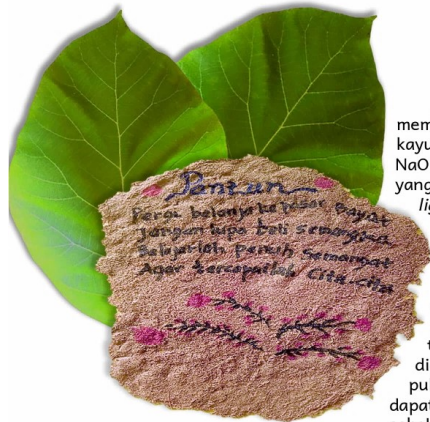 Pantun
Pergi belanja ke pasar Bayat
Jangan lupa beli semangka
Belajarlah penuh semangat
Agar tercapailah Cita-Cita
mem
kayu
NaO
yang
lig
t
di
pu
dapat